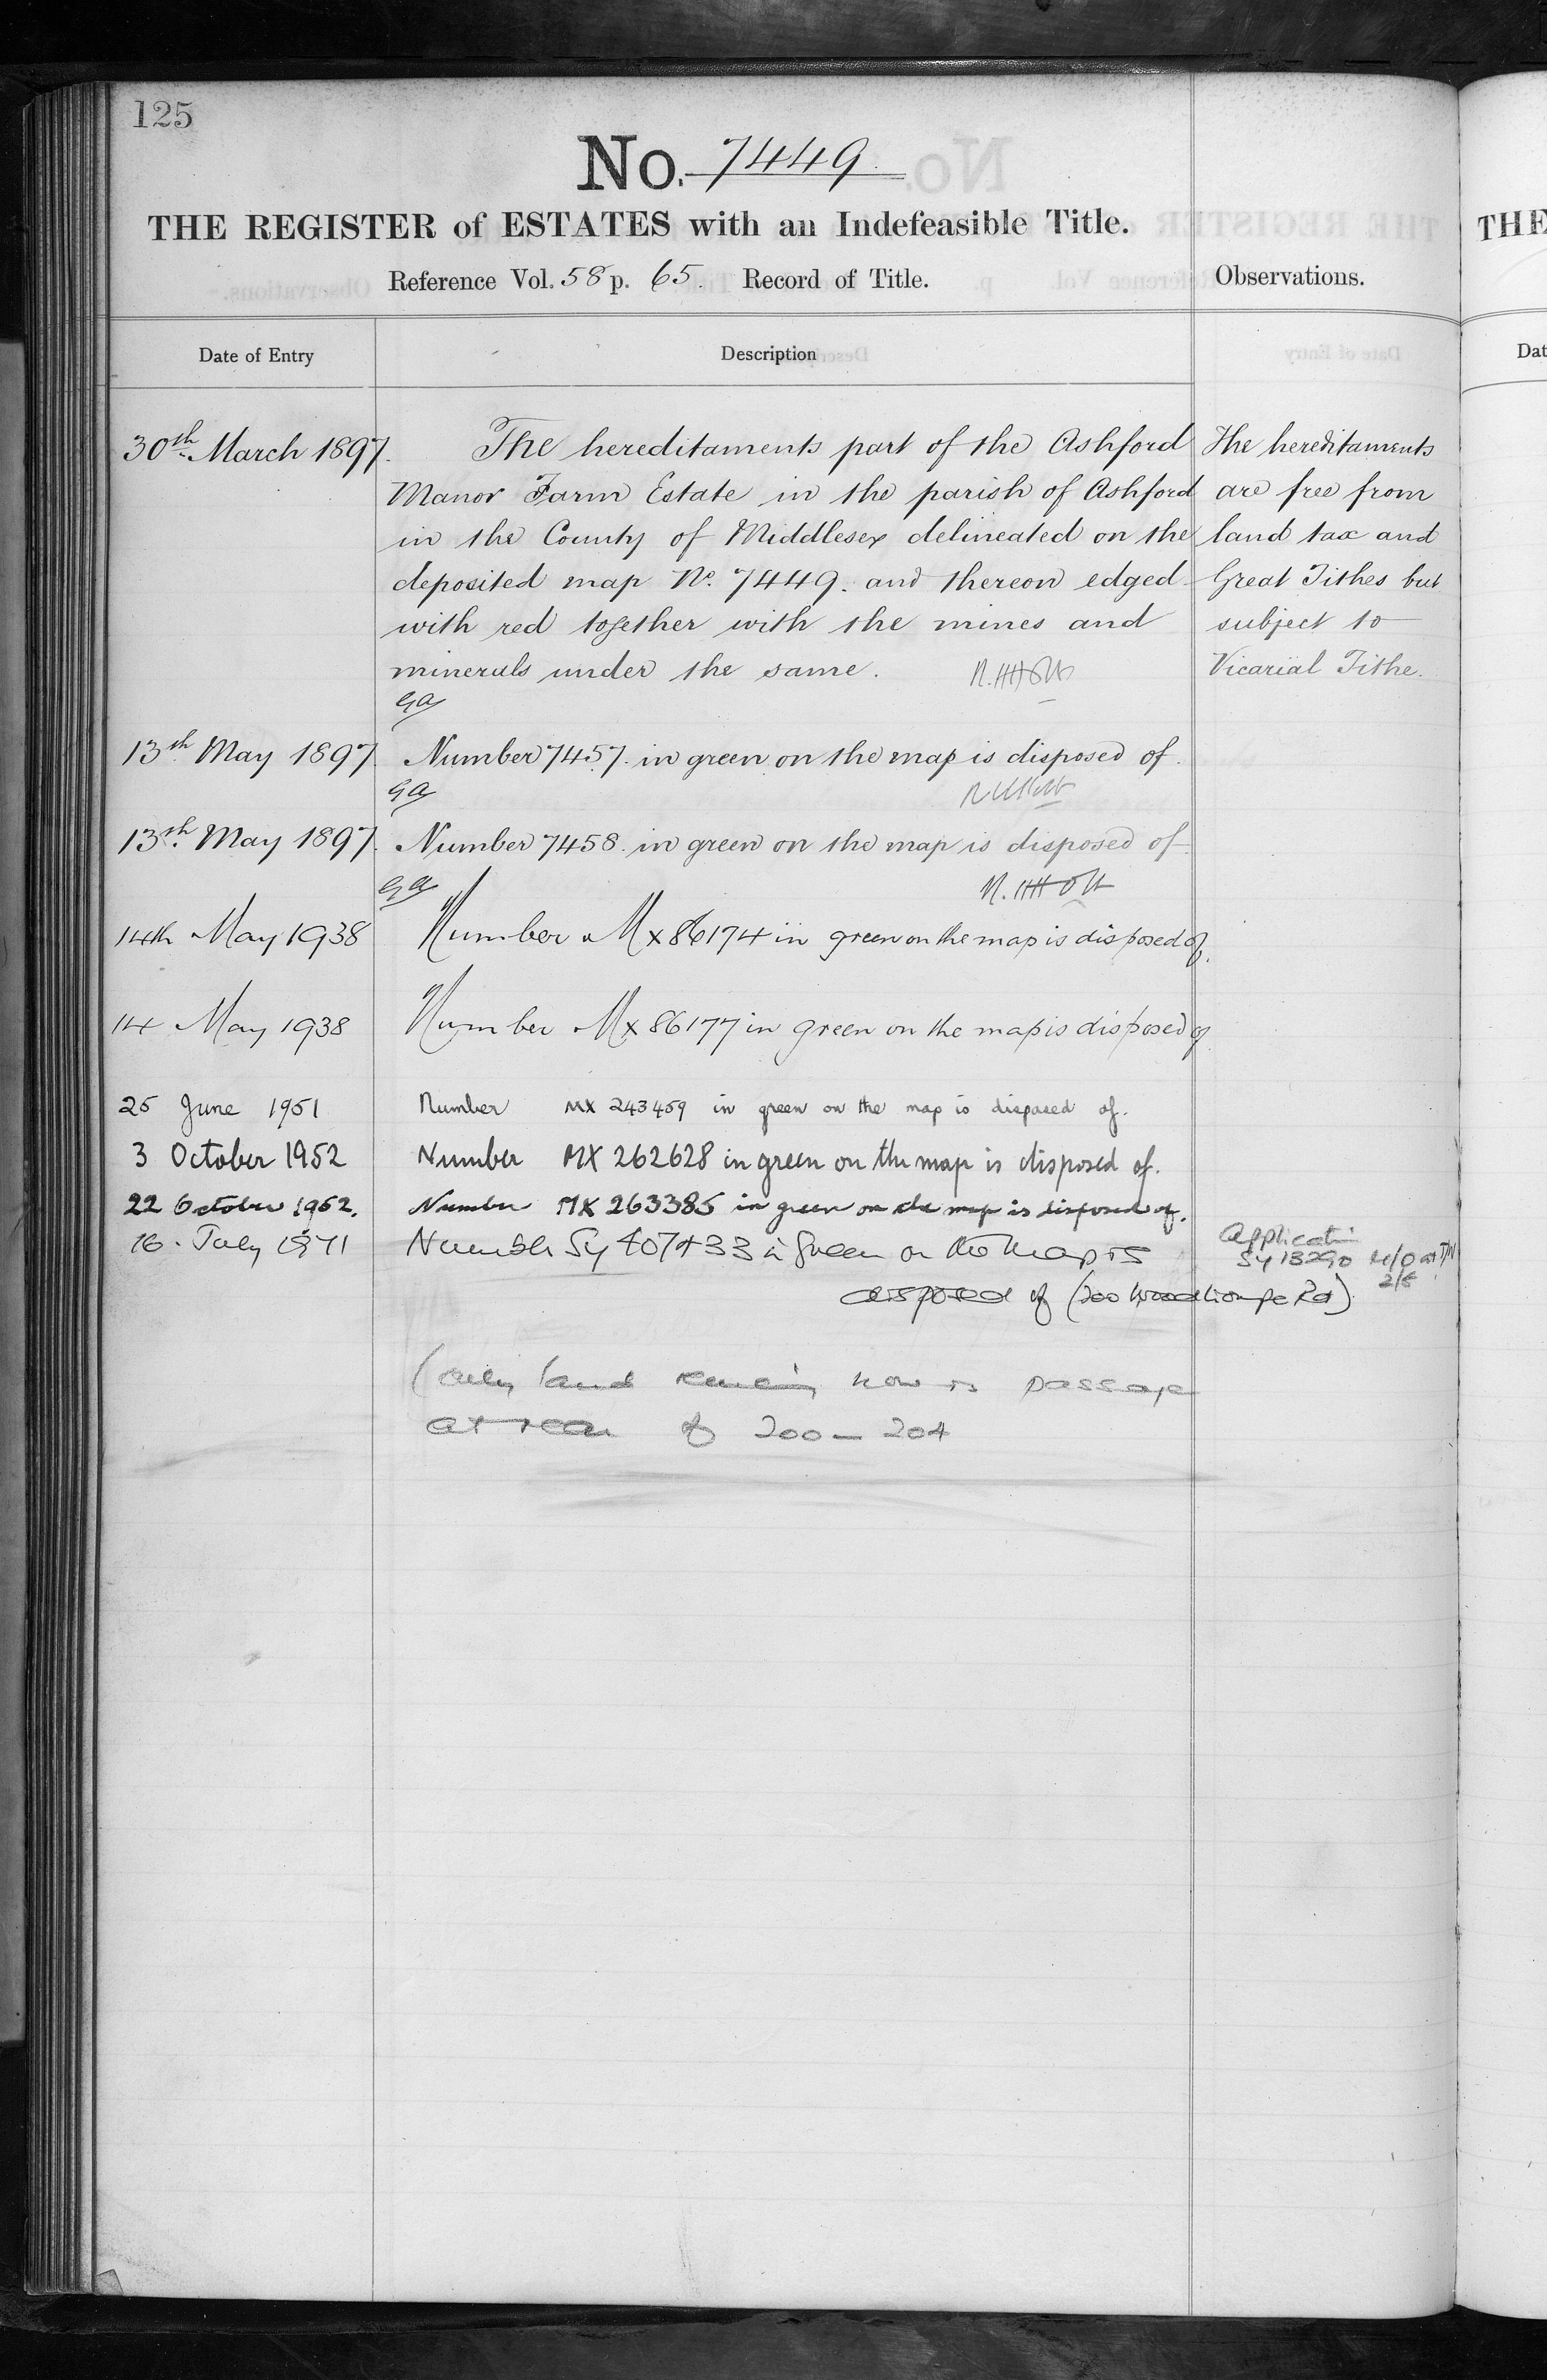 125
No. 7449.
THE REGISTER of ESTATES with an Indefeasible Title.
Reference Vol. 58 p. 65. Record of Title.
Observations.
Date of Entry
Description
30th March 1897.
The hereditaments part of the Ashford
Manor Farm Estate in the parish of Ashford
in the County of Middlesex delineated on the
deposited map No. 7449. and thereon edged
with red together with the mines and
minerals under the same.
The hereditaments
are free from
land tax and
Great Tithes but
subject to
Vicarial Tithe.
13th May 1897. Number 7457. in green on the map is disposed of.
13th May 1897. Number 7458. in green on the map is disposed of.
14th May 1938 Number Mx 86174 in green on the map is disposed of.
14 May 1938 Number Mx 86177 in green on the map is disposed of
25 June 1951 Number MX 243459 in green on the map is disposed of.
3 October 1952 Number MX 262628 in green on the map is disposed of.
22 October 1952. Number MX 263385 in green on the map is disposed of.
16. July 1971 Number Sy 407433 in green on the map is
disposed of (200 Woodthorpe Rd)
Application
Sy 13290
(Only land remaining now is passage
at rear of 200 - 204
THE
Dat